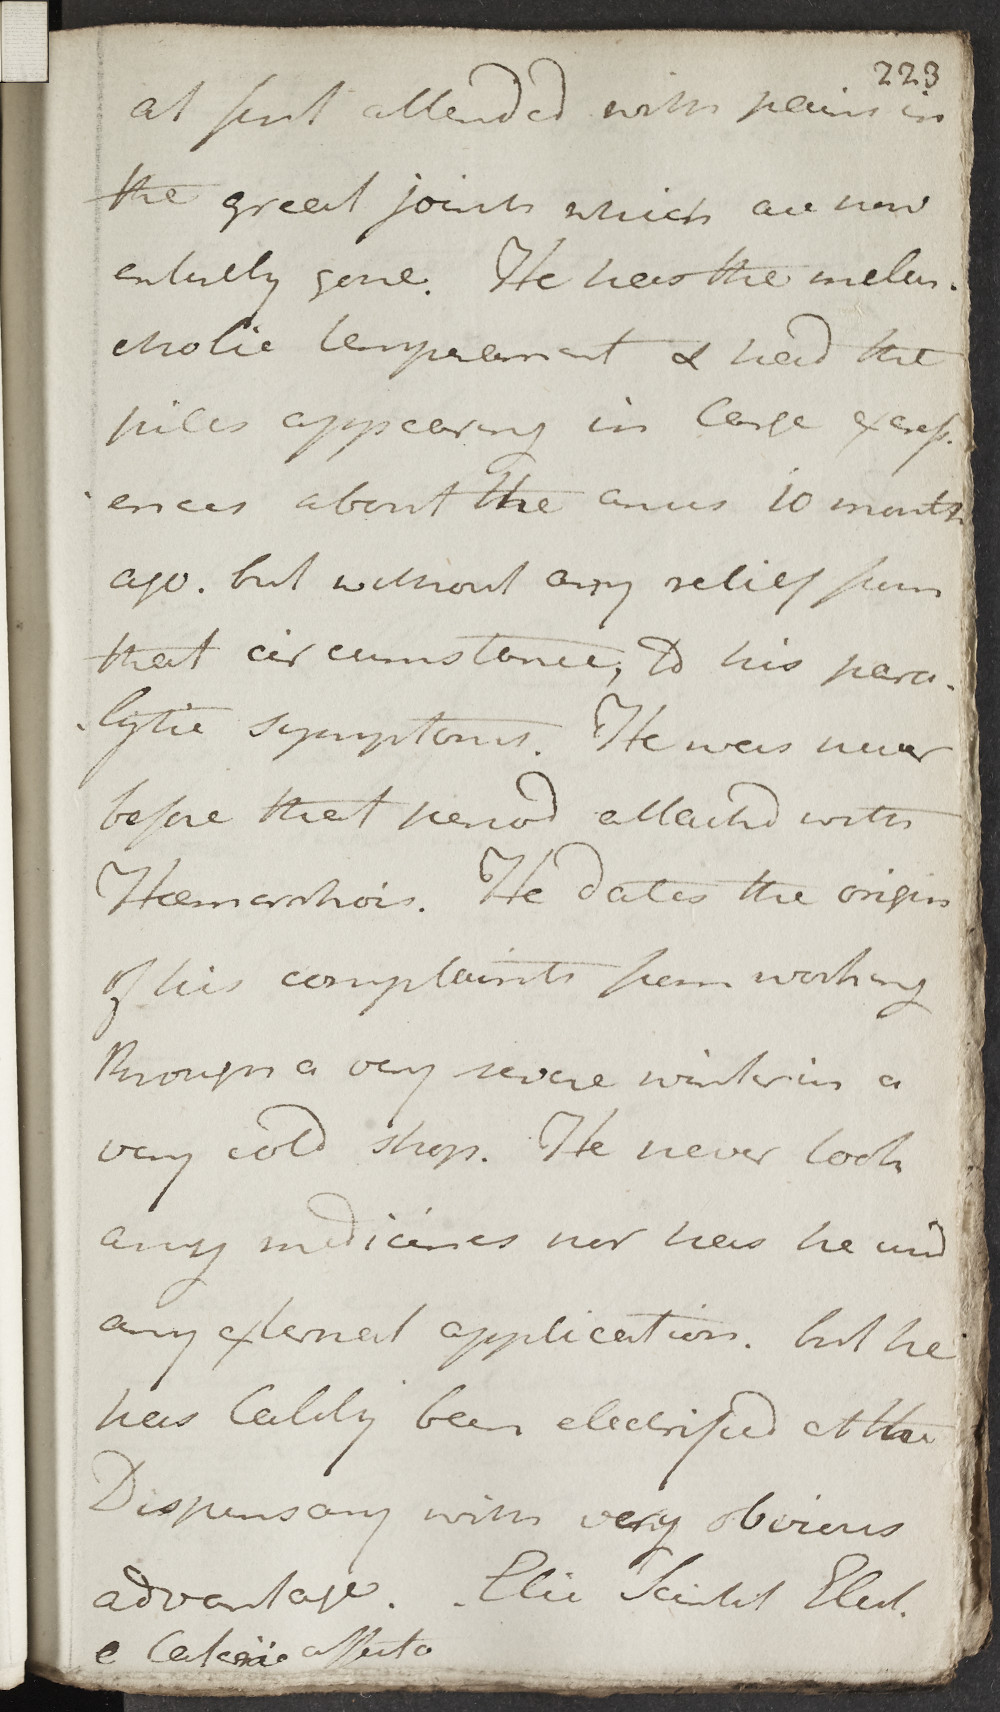 223
at first attended with pains in
the great joints which are now
entirely gone. He has the melan-
cholic temperament & had the
piles appearing in large excresc-
ences about the anus 10 months
ago. but without any relief from
that circumstance, to his para-
lytic symptoms. He was never
before that period attacked with
Hæmorrhois. He dates the origin
of his complaints from working
through a very severe winter in a
very cold shop. He never took
any medicines nor has he used
any external application. but he
has lately been electrified at the
Dispensary with very obvious
advantage. Elic Scintil Elect.
e latere affecto